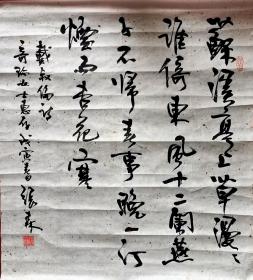 蘇溪亭上草漫漫
誰倚東風十二闌燕
子不歸春事晚一汀
煙雨杏花寒
戴叔倫詩
戊寅春 張森